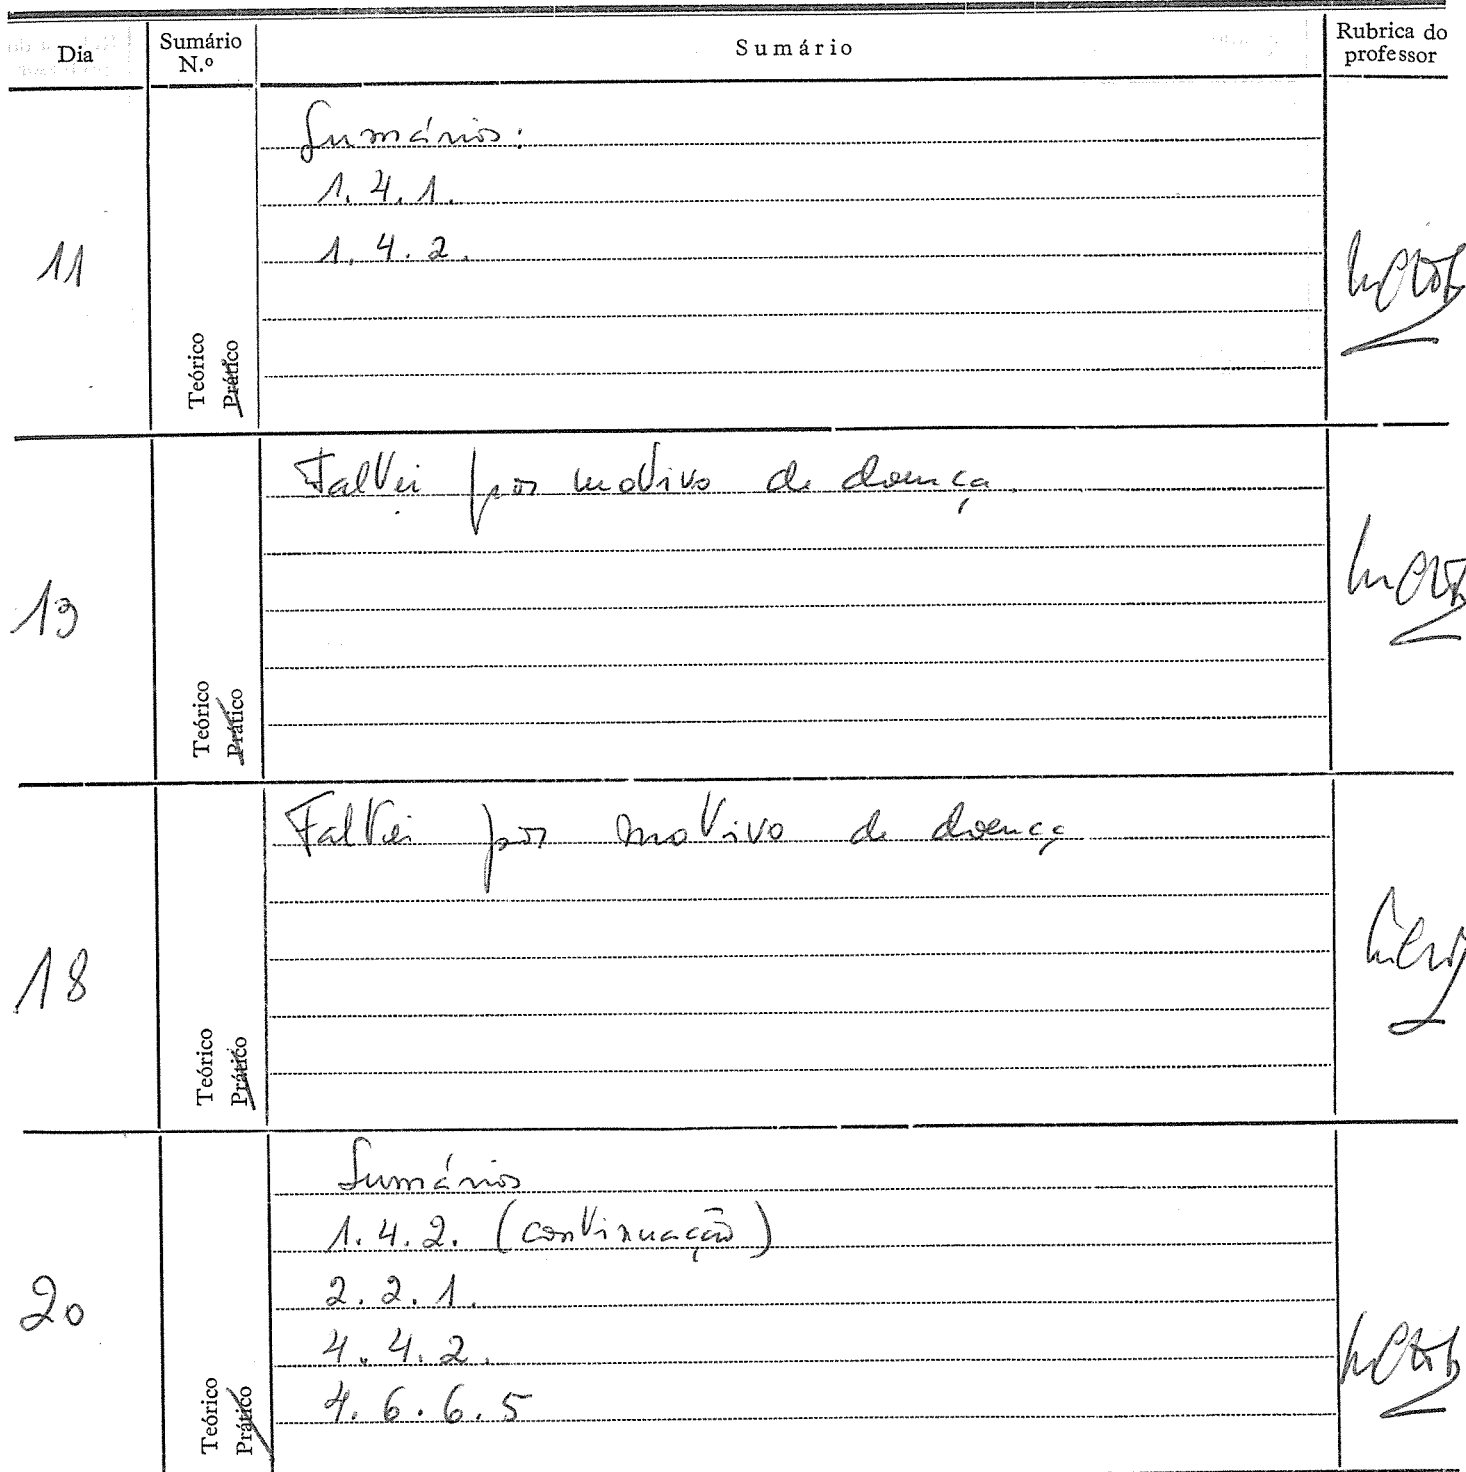 Dia
Sumário N.º
Sumário
Rubrica do professor
11
Teórico
Prático
Sumários:
1.4.1.
1.4.2.
13
Teórico
Prático
Faltei por motivo de doença.
18
Teórico
Prático
Faltei por motivo de doença
20
Teórico
Prático
Sumários
1.4.2. (continuação)
2.2.1.
4.4.2.
4.6.6.5